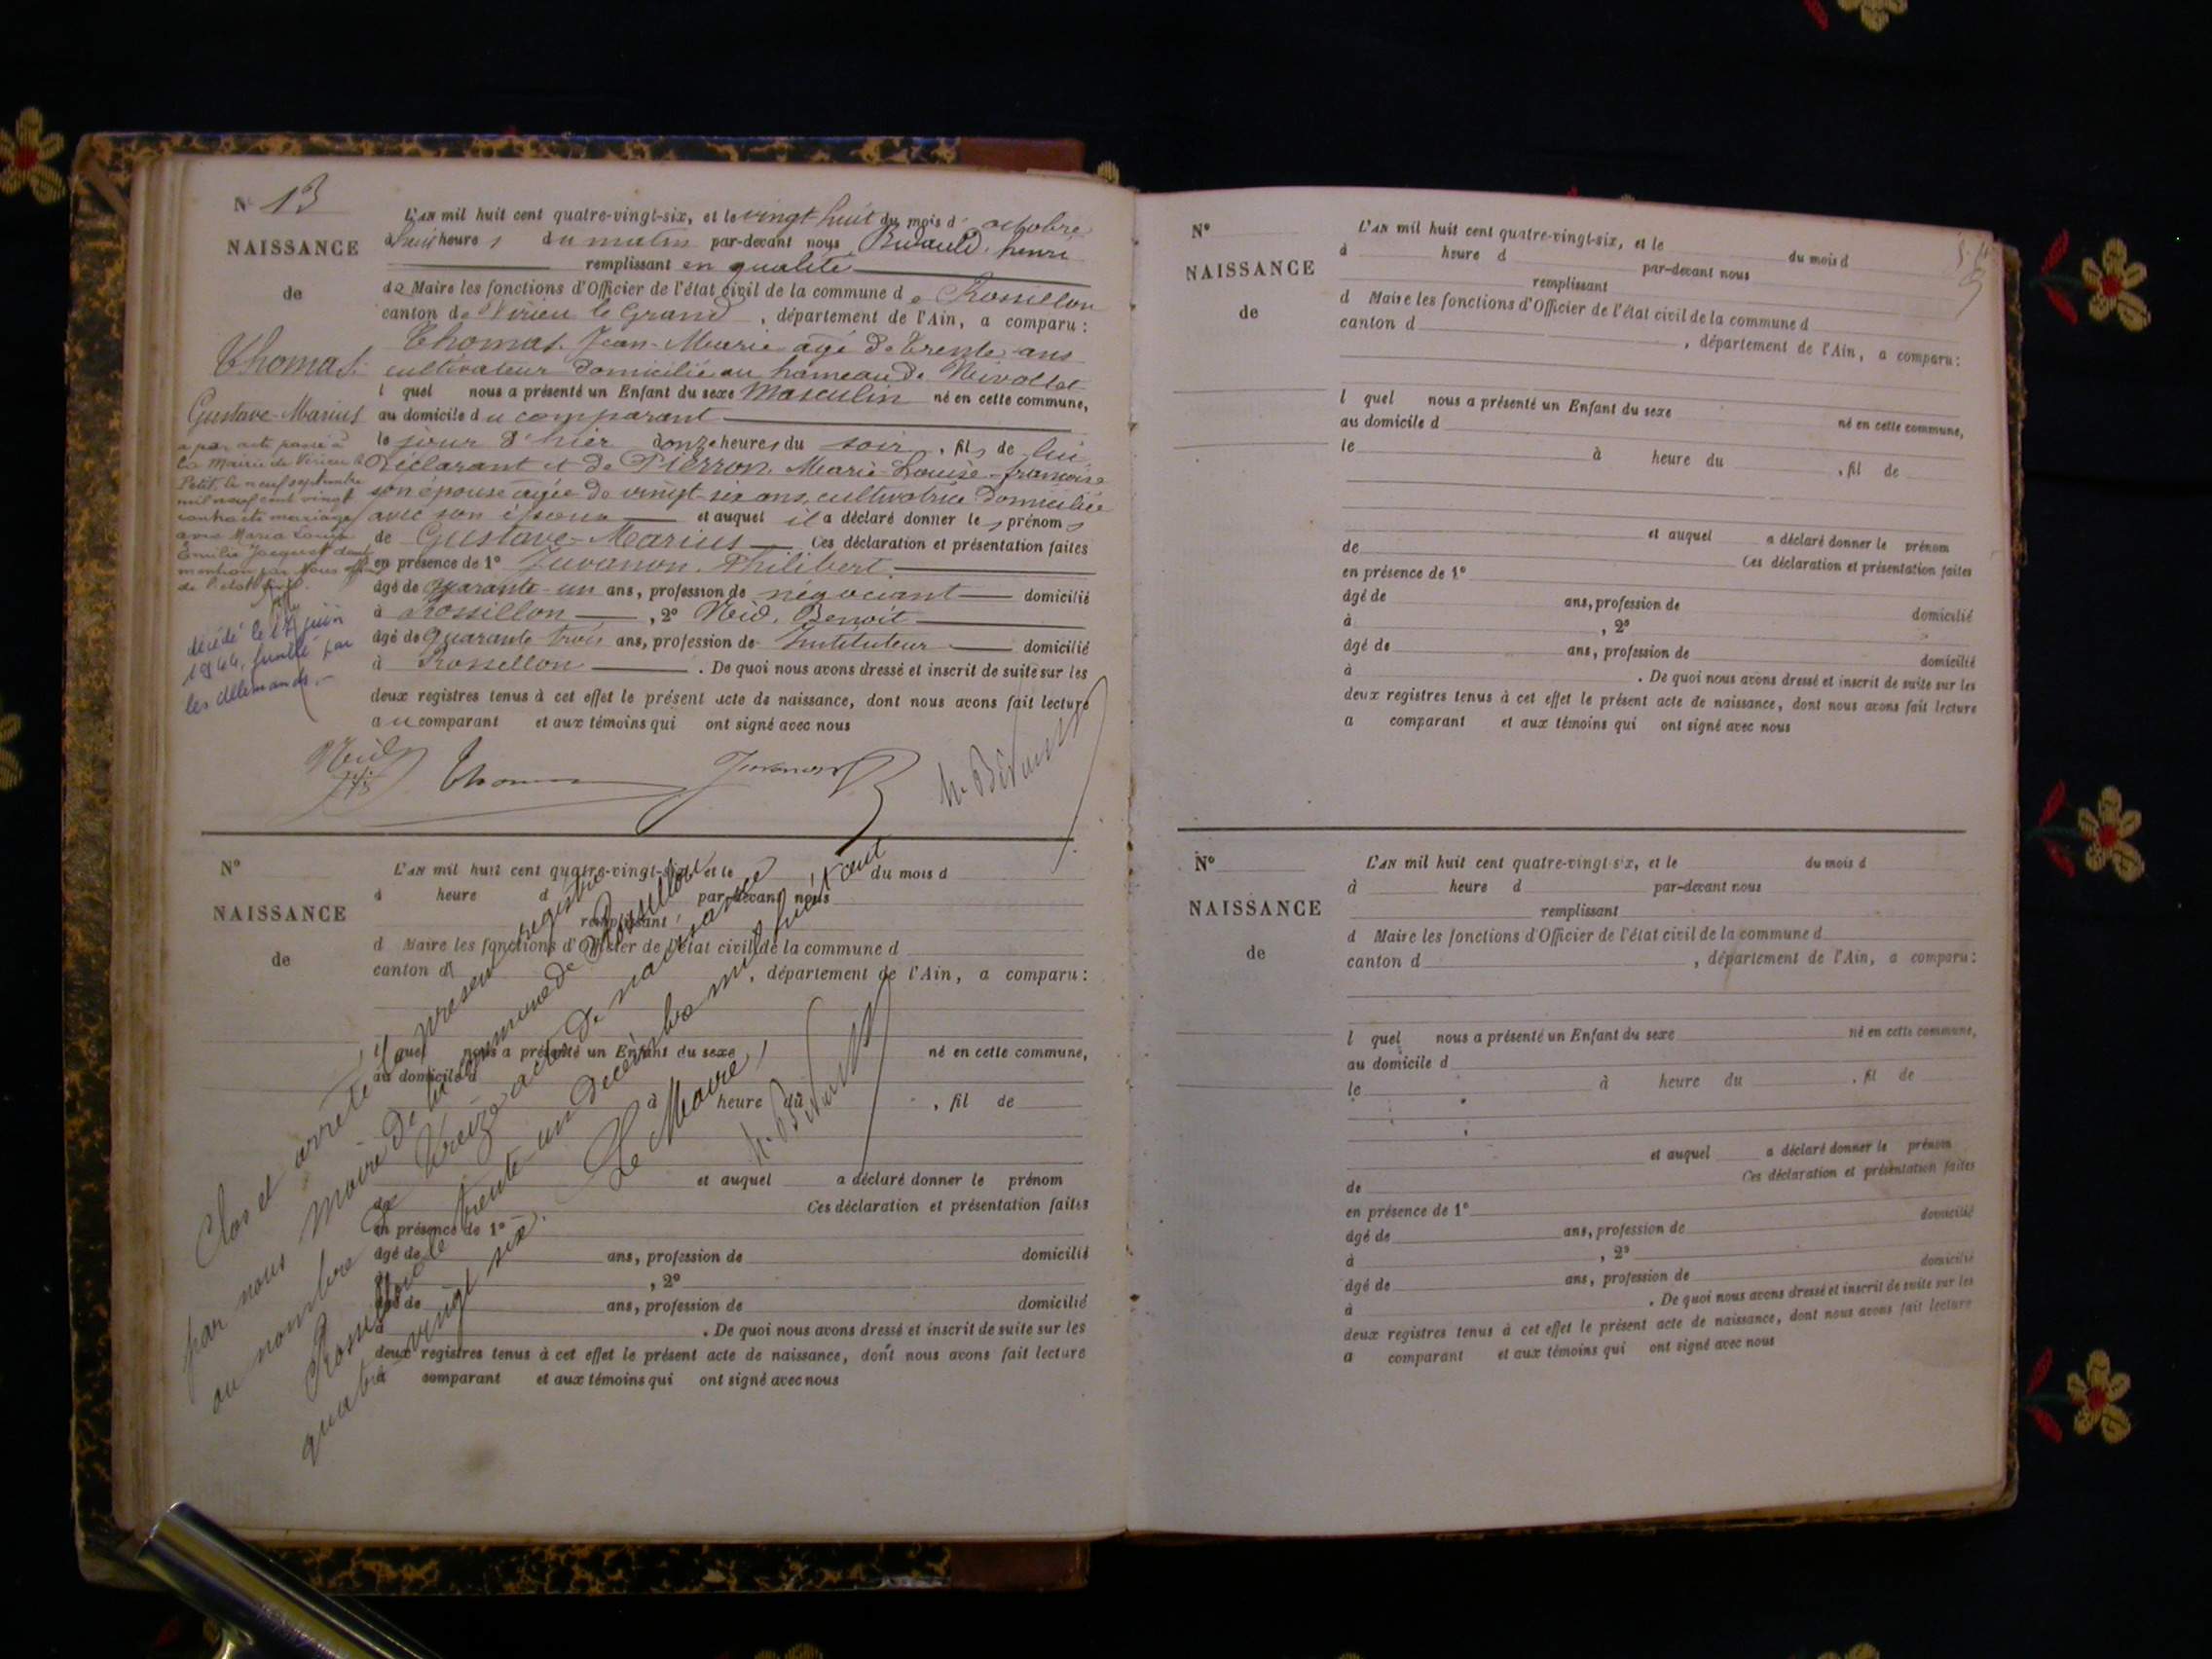 N° 13
NAISSANCE
de
Thomas
Gustave-Marius
a par acte passé à
la Mairie de Virieu le
Petit, le neuf septembre
mil neuf cent vingt
contracté mariage
avec Maria Louise
Emilie Jacquet dont
mention par Nous
de l'état civil.
décédé le 17 juin
1944, fusillé par
les allemands.-
L'AN mil huit cent quatre-vingt-six, et le vingt huit du mois d' octobre
à huit heures du matin par-devant nous Bivauld. henri
remplissant en qualité
de Maire les fonctions d'Officier de l'état civil de la commune de Rossillon
canton de Virieu le Grand, département de l'Ain, a comparu:
Thomas. Jean-Marie âgé de trente ans
cultivateur domicilié au hameau de
l quel nous a présenté un Enfant du sexe Masculin né en cette commune,
au domicile du comparant
le jour d'hier à onze heures du soir, fils de lui
Déclarant et de Pierron, Marie Louise-françoise
son épouse âgée de vingt six ans, cultivatrice domiciliée
avec son époux et auquel il a déclaré donner les prénoms
de Gustave-Marius Ces déclaration et présentation faites
en présence de 1° Juvanon. Philibert.
âgé de quarante-un ans, profession de négociant domicilié
à Rossillon, 2° Neid. Benoit
âgé de quarante trois ans, profession de Instituteur domicilié
à Rossillon. De quoi nous avons dressé et inscrit de suite sur les
deux registres tenus à cet effet le présent acte de naissance, dont nous avons fait lecture
au comparant et aux témoins qui ont signé avec nous
Neid Thomas Juvanon
N°
NAISSANCE
de
L'AN mil huit cent quatre-vingt-six, et le du mois d
à heure d par-devant nous
remplissant
d Maire les fonctions d'Officier de l'état civil de la commune d
canton d, département de l'Ain, a comparu:
l quel nous a présenté un Enfant du sexe né en cette commune,
au domicile d
à heure du, fil de
et auquel a déclaré donner le prénom
de Ces déclaration et présentation faites
en présence de 1°
âgé de ans, profession de domicilié
à, 2°
âgé de ans, profession de domicilié
à. De quoi nous avons dressé et inscrit de suite sur les
deux registres tenus à cet effet le présent acte de naissance, dont nous avons fait lecture
a comparant et aux témoins qui ont signé avec nous
Clos et arrêté le présent registre
par nous Maire de la commune de Rossillon
au nombre de treize actes de naissance
Rossillon le trente-un décembre mil huit cent
quatre-vingt six.
Le Maire,
N°
NAISSANCE
de
L'AN mil huit cent quatre-vingt-six, et le du mois d
à heure d par-devant nous
remplissant
d Maire les fonctions d'Officier de l'état civil de la commune d
canton d, département de l'Ain, a comparu:
l quel nous a présenté un Enfant du sexe né en cette commune,
au domicile d
le à heure du, fil de
et auquel a déclaré donner le prénom
de Ces déclaration et présentation faites
en présence de 1°
âgé de ans, profession de domicilié
à, 2°
âgé de ans, profession de domicilié
à. De quoi nous avons dressé et inscrit de suite sur les
deux registres tenus à cet effet le présent acte de naissance, dont nous avons fait lecture
a comparant et aux témoins qui ont signé avec nous
N°
NAISSANCE
de
L'AN mil huit cent quatre-vingt-six, et le du mois d
à heure d par-devant nous
remplissant
d Maire les fonctions d'Officier de l'état civil de la commune d
canton d, département de l'Ain, a comparu:
l quel nous a présenté un Enfant du sexe né en cette commune,
au domicile d
le à heure du, fil de
et auquel a déclaré donner le prénom
de Ces déclaration et présentation faites
en présence de 1°
âgé de ans, profession de domicilié
à, 2°
âgé de ans, profession de domicilié
à. De quoi nous avons dressé et inscrit de suite sur les
deux registres tenus à cet effet le présent acte de naissance, dont nous avons fait lecture
a comparant et aux témoins qui ont signé avec nous